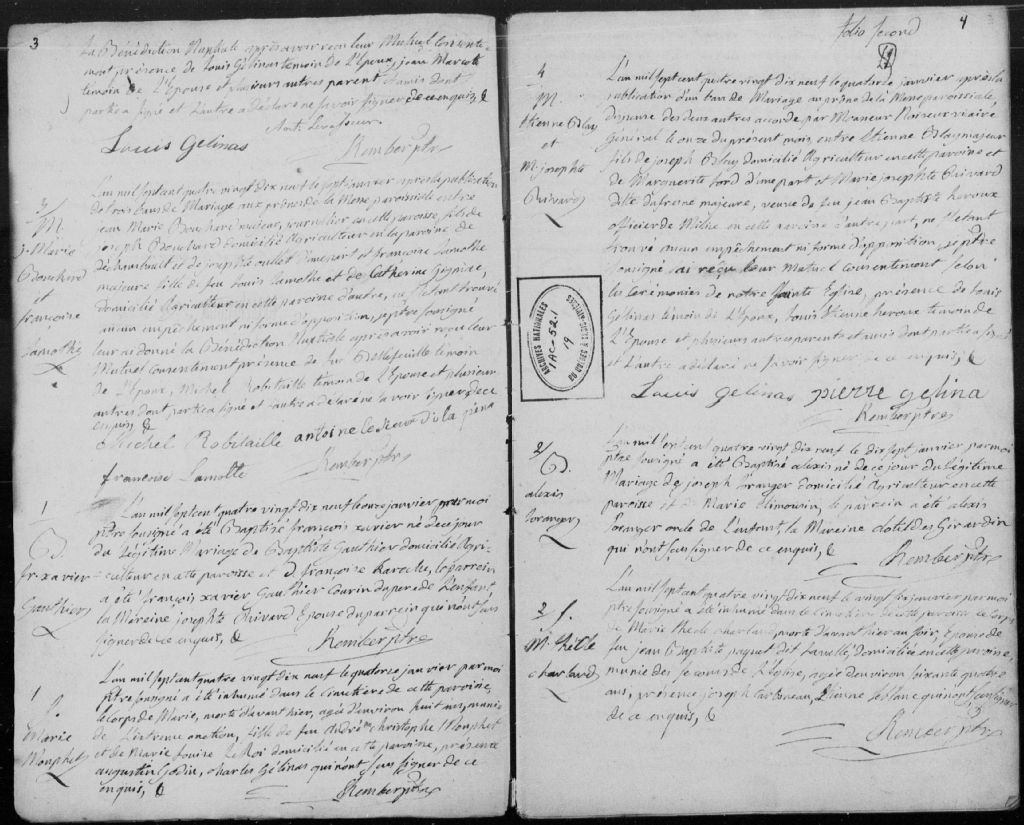 3
la Bénédiction Nuptiale après avoir reçu leur Mutuel consente-
ment présence de Louis Gélinas temoin de L'Epoux, jean Marcot
temoin de L'Epouse et plusieurs autres parent et amis dont
partie a signé et L'autre a déclaré ne savoir signer de ce enquis, &
Ant. Levasseur
Louis Gelinas
Rember ptre
3
M.
j. Marie
Bouchard
et
françoise
Lamothe
L'an mil sept cent quatre vingt dix neuf le sept janvier après la publication
de trois bans de Mariage aux prônes de la Messe paroissiale entre
jean Marie Bouchard majeur, en cette paroisse, fils de
joseph Bouchard domicilié Agriculteur en la paroisse de
déchambault et de josephte oullet d'une part et françoise Lamothe
majeure fille de feu Louis Lamothe et de Catherine
domicilié Agriculteur en cette paroisse d'autre, ne s'étant trouvé
aucun empêchement ni forme d'opposition, je ptre soussigné
leur ai donné la Bénédiction Nuptiale après avoir reçu leur
Mutuel consentement présence de Bellefeuille temoin
de L'Epoux, Michel Robitaille temoin de L'Epouse et plusieurs
autres dont partie a signé et L'autre a déclaré ne savoir signer de ce
enquis &
Michel Robitaille antoine
francoise Lamotte
Rember ptre
1
B.
fr. xavier
Gauthier
L'an mil sept cent quatre vingt dix neuf le onze janvier par moi
ptre soussigné a été Baptisé françois xavier né de ce jour
du Légitime Mariage de Baptiste Gauthier domicilié Agri-
culteur en cette paroisse et D. françoise Laroche, le parrein
a été françois xavier Gauthier Cousin du pere de L'enfant
la Méreine josephte Rivard Epouse du parrein qui n'ont sçus
signer de ce enquis, &
Rember ptre
1
S.
Marie
Monphet
L'an mil sept cent quatre vingt dix neuf le quatorze janvier par moi
ptre soussigné a été inhumé dans le cimetière de cette paroisse,
le corps de Marie, morte d'avant hier, agée d'environ huit ans, munie
de L'extreme onction, fille de feu André christophe Monphet
et de Marie Louise LeRoi domicilié en cette paroisse, présence
augustin Godin, charles Gélinas qui n'ont sçus signer de ce
enquis, &
Rember ptre
folio second
4
4
M.
Etienne
et
M. josephte
Rivard
L'an mil sept cent quatre vingt dix neuf le quatorze janvier après la
publication d'un ban de Mariage au prône de la Messe paroissiale,
dispense des deux autres accordé par Monsieur Noiseux vicaire
Général le onze du présent mois entre Etienne majeur
fils de joseph domicilié Agriculteur en cette paroisse et
de Marguerite d'une part et Marie josephte Rivard
dite dufresne majeure, veuve de feu jean Baptiste heroux
officier de Milice en cette paroisse d'autre part, ne s'étant
trouvé aucun empêchement ni forme d'opposition, je ptre
soussigné ai reçu leur Mutuel consentement selon
les cérémonies de notre Sainte Eglise, présence de Louis
Gélinas temoin de L'Epoux, Louis Etienne heroux temoin de
L'Epouse et plusieurs autres parents et amis dont partie a signé
et L'autre a déclaré ne savoir signer de ce enquis, &
Louis Gelinas pierre gelina
Rember ptre
ARCHIVES NATIONALES
1AC-52.1
19
2
B.
alexis
Boranger
L'an mil sept cent quatre vingt dix neuf le dix sept janvier par moi
ptre soussigné a été Baptisé alexis né de ce jour du Légitime
Mariage de joseph Boranger domicilié Agriculteur en cette
paroisse et D. Marie Limousin, le parrein a été alexis
Boranger oncle de L'enfant, la Mareine clotilde Girardin
qui n'ont sçus signer de ce enquis, &
Rember ptre
2 S.
M. Thècle
charland
L'an mil sept cent quatre vingt dix neuf le vingt janvier par moi
ptre soussigné a été inhumé dans le cimetière de cette paroisse le corps
de Marie thecle charland, morte d'avant hier au soir, Epouse de
feu jean Baptiste paquet dit Lavallé, domicilié en cette paroisse,
munie des secours de L'Eglise, agée d'environ soixante quatre
ans, présence joseph Carboneau, Etienne Leblanc qui n'ont sçus signer
de ce enquis, &
Rember ptre